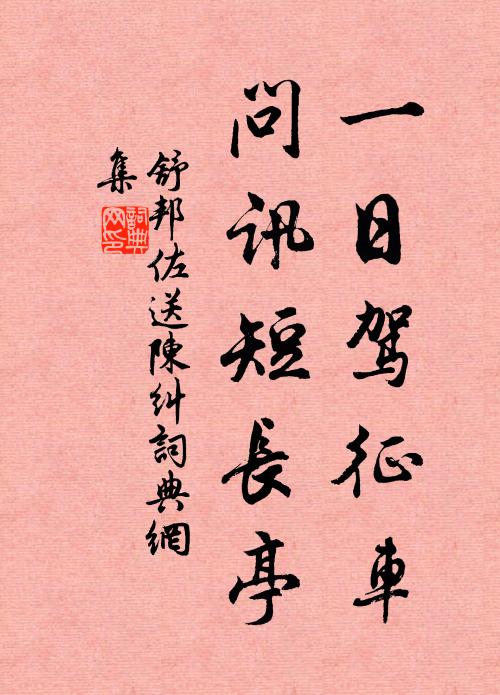 一日駕征車
問訊短長亭
舒邦佐送陳糾詞典網
集
詞典網印